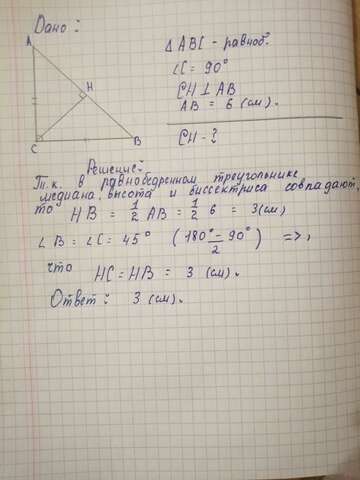 Дано:
A
H
C
B
△ABC - равноб.
∠C = 90°
CH ⊥ AB
AB = 6 (см).
CH - ?
Решение:
Т.к. в равнобедренном треугольнике
медиана, высота и биссектриса совпадают,
то HB = 1/2 AB = 1/2 6 = 3(см)
∠B = ∠C = 45° (180° - 90° / 2) =>,
что HC = HB = 3 (см).
Ответ: 3 (см).